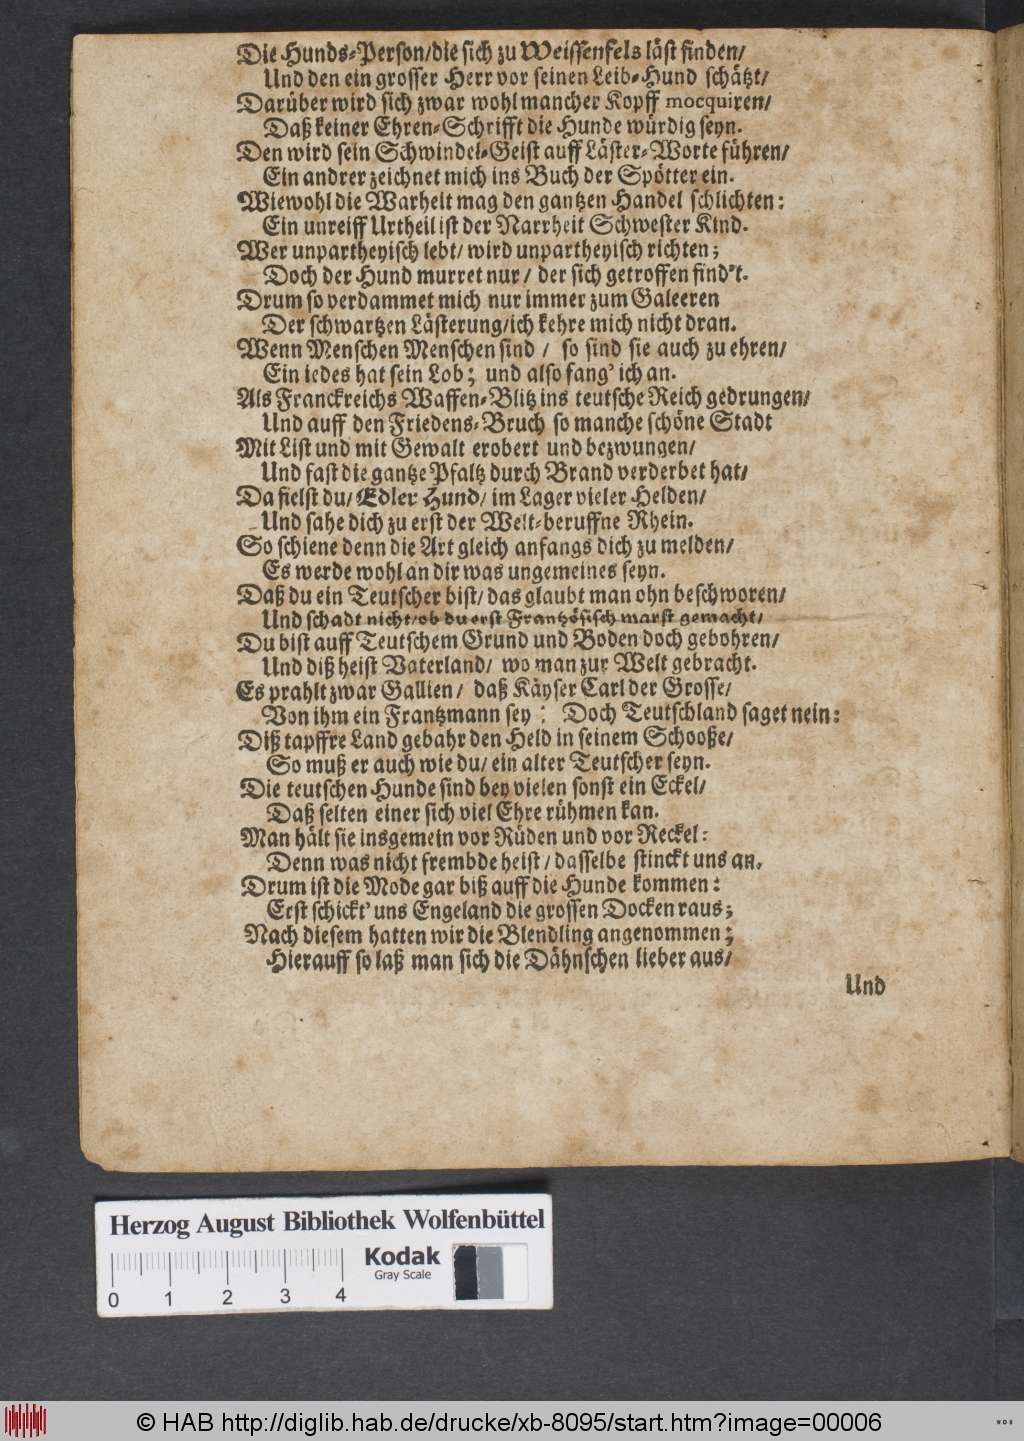 Die Hunds-Person/die sich zu Weissenfels läst finden/
Und den ein grosser Herr vor seinen Leib-Hund schätzt/
Darüber wird sich zwar wohl mancher Kopff mocquiren/
Daß keiner Ehren-Schrifft die Hunde würdig seyn.
Den wird sein Schwindel-Geist auff Läster-Worte führen/
Ein andrer zeichnet mich ins Buch der Spötter ein.
Wiewohl die Warheit mag den gantzen Handel schlichten:
Ein unreiff Urtheil ist der Narrheit Schwester Kind.
Wer unpartheyisch lebt/ wird unpartheyisch richten;
Doch der Hund murret nur/ der sich getroffen find't.
Drum so verdammet mich nur immer zum Galeeren
Der schwartzen Lästerung/ich kehre mich nicht dran.
Wenn Menschen Menschen sind / so sind sie auch zu ehren/
Ein iedes hat sein Lob; und also fang' ich an.
Als Franckreichs Waffen-Blitz ins teutsche Reich gedrungen/
Und auff den Friedens-Bruch so manche schöne Stadt
Mit List und mit Gewalt erobert und bezwungen/
Und fast die gantze Pfaltz durch Brand verderbet hat/
Da fielst du/ Edler Hund/ im Lager vieler Helden/
Und sahe dich zu erst der Welt-beruffne Rhein.
So schiene denn die Art gleich anfangs dich zu melden/
Es werde wohl an dir was ungemeines seyn.
Daß du ein Teutscher bist/ das glaubt man ohn beschworen/
Und schadt nicht/ob du erst Frantzösisch warst gemacht/
Du bist auff Teutschem Grund und Boden doch gebohren/
Und diß heist Vaterland/ wo man zur Welt gebracht.
Es prahlt zwar Gallien/ daß Käyser Carl der Grosse/
Von ihm ein Frantzmann sey: Doch Teutschland saget nein:
Diß tapffre Land gebahr den Held in seinem Schooße/
So muß er auch wie du/ ein alter Teutscher seyn.
Die teutschen Hunde sind bey vielen sonst ein Eckel/
Daß selten einer sich viel Ehre rühmen kan.
Man hält sie insgemein vor Rüden und vor Reckel:
Denn was nicht frembde heist/ dasselbe stinckt uns an.
Drum ist die Mode gar biß auff die Hunde kommen:
Erst schickt' uns Engeland die grossen Docken raus;
Nach diesem hatten wir die Blendling angenommen;
Hierauff so laß man sich die Dähnschen lieber aus/
Und
Herzog August Bibliothek Wolfenbüttel
Kodak
Gray Scale
0 1 2 3 4
© HAB http://diglib.hab.de/drucke/xb-8095/start.htm?image=00006